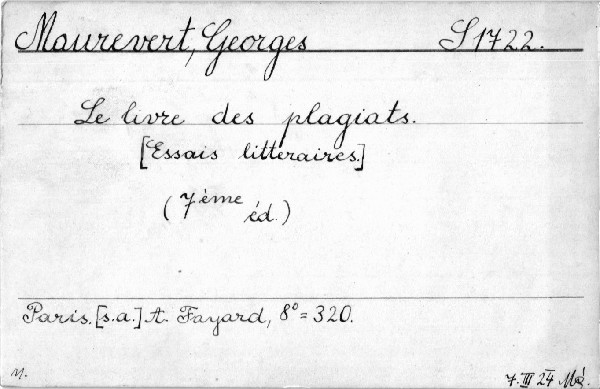 Maurevert, Georges S 1722.
Le livre des plagiats.
[Essais litteraires.]
(7ème éd.)
Paris. [s.a.] A. Fayard, 8° = 320.
n. 7. III 24 Má.